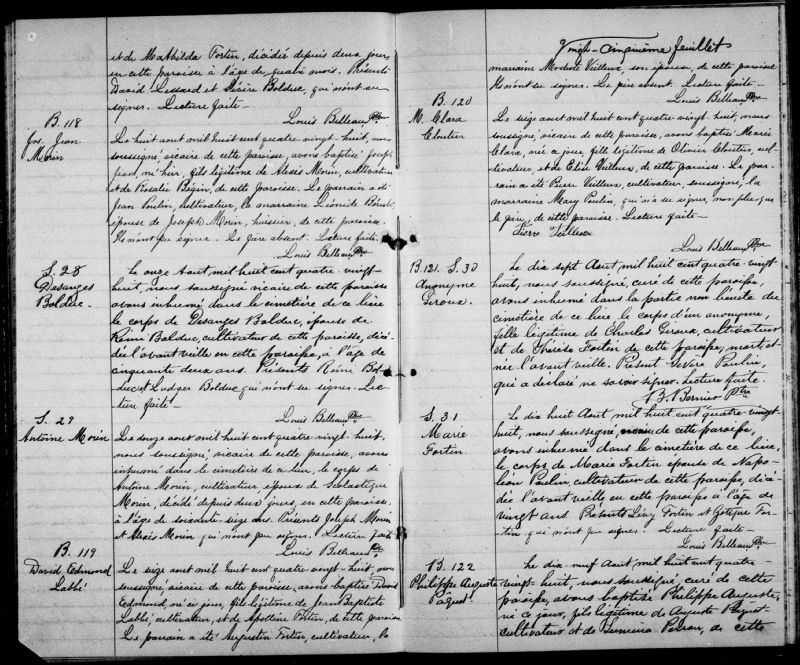 et de Mathilda Fortin, décédée depuis deux jours
en cette paroisse à l'âge de quatre mois. Présents
David Lessard et Désiré Bolduc, qui n'ont su
signer. Lecture faite.
Louis Belleau Ptre
B. 118
Jos. Jean
Morin
Le huit aout mil huit cent quatre-vingt-huit, nous
soussigné, vicaire de cette paroisse, avons baptisé Joseph
Jean, né hier, fils légitime de Alexis Morin, cultivateur
et de Rosalie Bégin, de cette paroisse. Le parrain a été
Jean Poulin, cultivateur, la marraine Léonide
épouse de Joseph Morin, huissier, de cette paroisse.
Ils n'ont pu signer. Le père absent. Lecture faite.
Louis Belleau Ptre
S. 28
Desanges
Bolduc
Le onze Aout mil huit cent quatre-vingt-
huit, nous soussigné vicaire de cette paroisse
avons inhumé dans le cimetière de ce lieu
le corps de Desanges Bolduc, épouse de
Rémi Bolduc, cultivateur de cette paroisse, décé-
dée l'avant veille en cette paroisse, à l'âge de
cinquante deux ans. Présents Rémi Bol-
duc et Ludger Bolduc qui n'ont su signer. Lec-
ture faite.
Louis Belleau Ptre
S. 29
Antoine Morin
Le seize aout mil huit cent quatre-vingt-huit,
nous soussigné, vicaire de cette paroisse, avons
inhumé dans le cimetière de ce lieu, le corps de
Antoine Morin, cultivateur, époux de Scolastique
Morin, décédé depuis deux jours, en cette paroisse
à l'âge de soixante-seize ans. Présents Joseph Morin
et Alexis Morin qui n'ont pu signer. Lecture faite
Louis Belleau Ptre
B. 119
David Edmond
Labbé
Le seize aout mil huit cent quatre-vingt-huit, nous
soussigné, vicaire de cette paroisse, avons baptisé David
Edmond, né ce jour, fils légitime de Jean Baptiste
Labbé, cultivateur, et de Apolline Fortin, de cette paroisse
Le parrain a été Augustin Fortin, cultivateur, la
Vingt-cinquième feuillet
marraine Modeste Veilleux, son épouse, de cette paroisse
Ils n'ont su signer. Le père absent. Lecture faite.
Louis Belleau Ptre
B. 120
M. Clara
Cloutier
Le seize aout mil huit cent quatre-vingt-huit, nous
soussigné, vicaire de cette paroisse, avons baptisé Marie
Clara, née ce jour, fille légitime de Olivier Cloutier, cul-
tivateur, et de Elise Veilleux, de cette paroisse. Le par-
rain a été Pierre Veilleux, cultivateur, soussigné, la
marraine Mary Poulin, qui n'a su signer, non plus que
le père, de cette paroisse. Lecture faite
Pierre Veilleux
Louis Belleau Ptre
B. 121. S. 30
Anonyme
Giroux.
Le dix sept Aout mil huit cent quatre-vingt-
huit, nous soussigné, curé de cette paroisse,
avons inhumé dans la partie non benite du
cimetière de ce lieu le corps d'un anonyme,
fille légitime de Charles Giroux, cultivateur
et de Thérèse Fortin de cette paroisse, mort et
née l'avant veille. Présent Sévère Poulin,
qui a déclaré ne savoir signer. Lecture faite.
B. Bernier Ptre
S. 31
Marie
Fortin
Le dix huit Aout mil huit cent quatre-vingt
huit, nous soussigné, vicaire de cette paroisse,
avons inhumé dans le cimetière de ce lieu,
le corps de Marie Fortin épouse de Napo-
léon Poulin, cultivateur de cette paroisse, décé-
dée l'avant veille en cette paroisse à l'âge de
vingt ans. Présents Lévy Fortin et For-
tin qui n'ont pu signer. Lecture faite
Louis Belleau Ptre
B. 122
Philippe Auguste
Paquet
Le dix-neuf Aout mil huit cent quatre-
vingt-huit, nous soussigné, curé de cette
paroisse, avons baptisé Philippe Auguste,
né ce jour, fils légitime de Auguste Paquet
cultivateur et de Perron, de cette